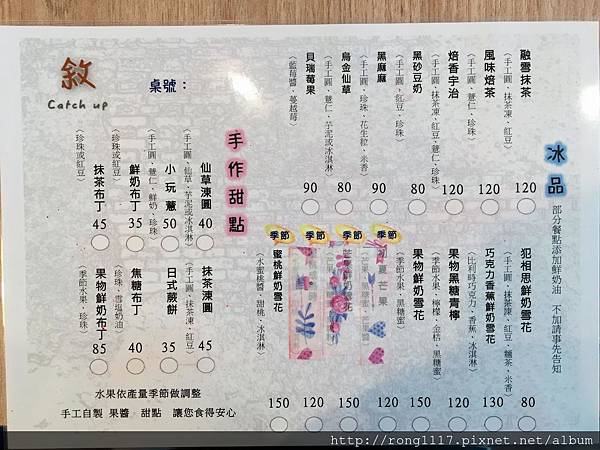 敘
Catch up
桌號：
冰品
部分餐點添加鮮奶油 不加請事先告知
融雪抹茶
（手工圓、抹茶凍、紅豆）
120
風味焙茶
（手工圓、薏仁、珍珠）
120
焙香宇治
（手工圓、抹茶凍、紅豆、薏仁、珍珠）
120
黑砂豆奶
（手工圓、紅豆、珍珠）
80
黑麻麻
90
烏金仙草
（手工圓、珍珠、花生粒、米香）
80
貝瑞莓果
（手工圓、薏仁、芋泥或冰淇淋）
90
（藍莓醬、蔓越莓）
犯相思鮮奶雪花
（手工圓、抹茶凍、紅豆、麵茶、米香）
80
巧克力香蕉鮮奶雪花
（比利時巧克力、香蕉、冰淇淋）
130
果物黑糖青檸
（季節水果、檸檬、金桔、黑糖蜜）
120
果物鮮奶雪花
（季節水果、黑糖蜜）
150
季節
夏芒果
120
季節
150
季節
120
季節
蜜桃鮮奶雪花
（水蜜桃醬、甜桃、冰淇淋）
150
手作甜點
仙草凍圓
（手工圓、仙草、芋泥或冰淇淋）
40
小玩薏
（手工圓、薏仁、鮮奶、珍珠）
50
鮮奶布丁
（珍珠或紅豆）
35
抹茶布丁
（珍珠或紅豆）
45
抹茶凍圓
（手工圓、抹茶凍、紅豆）
45
日式蕨餅
35
焦糖布丁
（珍珠、雪塩奶油）
40
果物鮮奶布丁
（季節水果、珍珠）
85
水果依產量季節做調整
手工自製 果醬 甜點 讓您食得安心
http://rong1117.pixnet.net/album